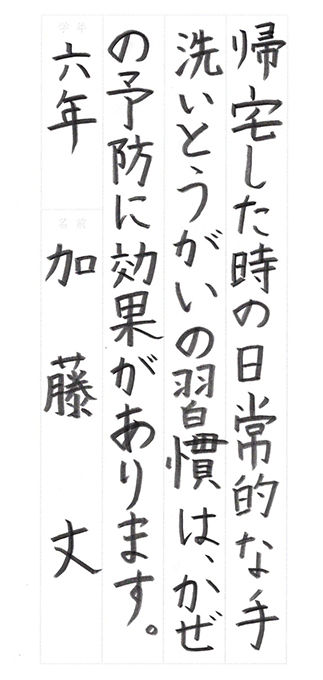 帰宅した時の日常的な手
洗いとうがいの習慣は、かぜ
の予防に効果があります。
学年
六年
名前
加藤丈